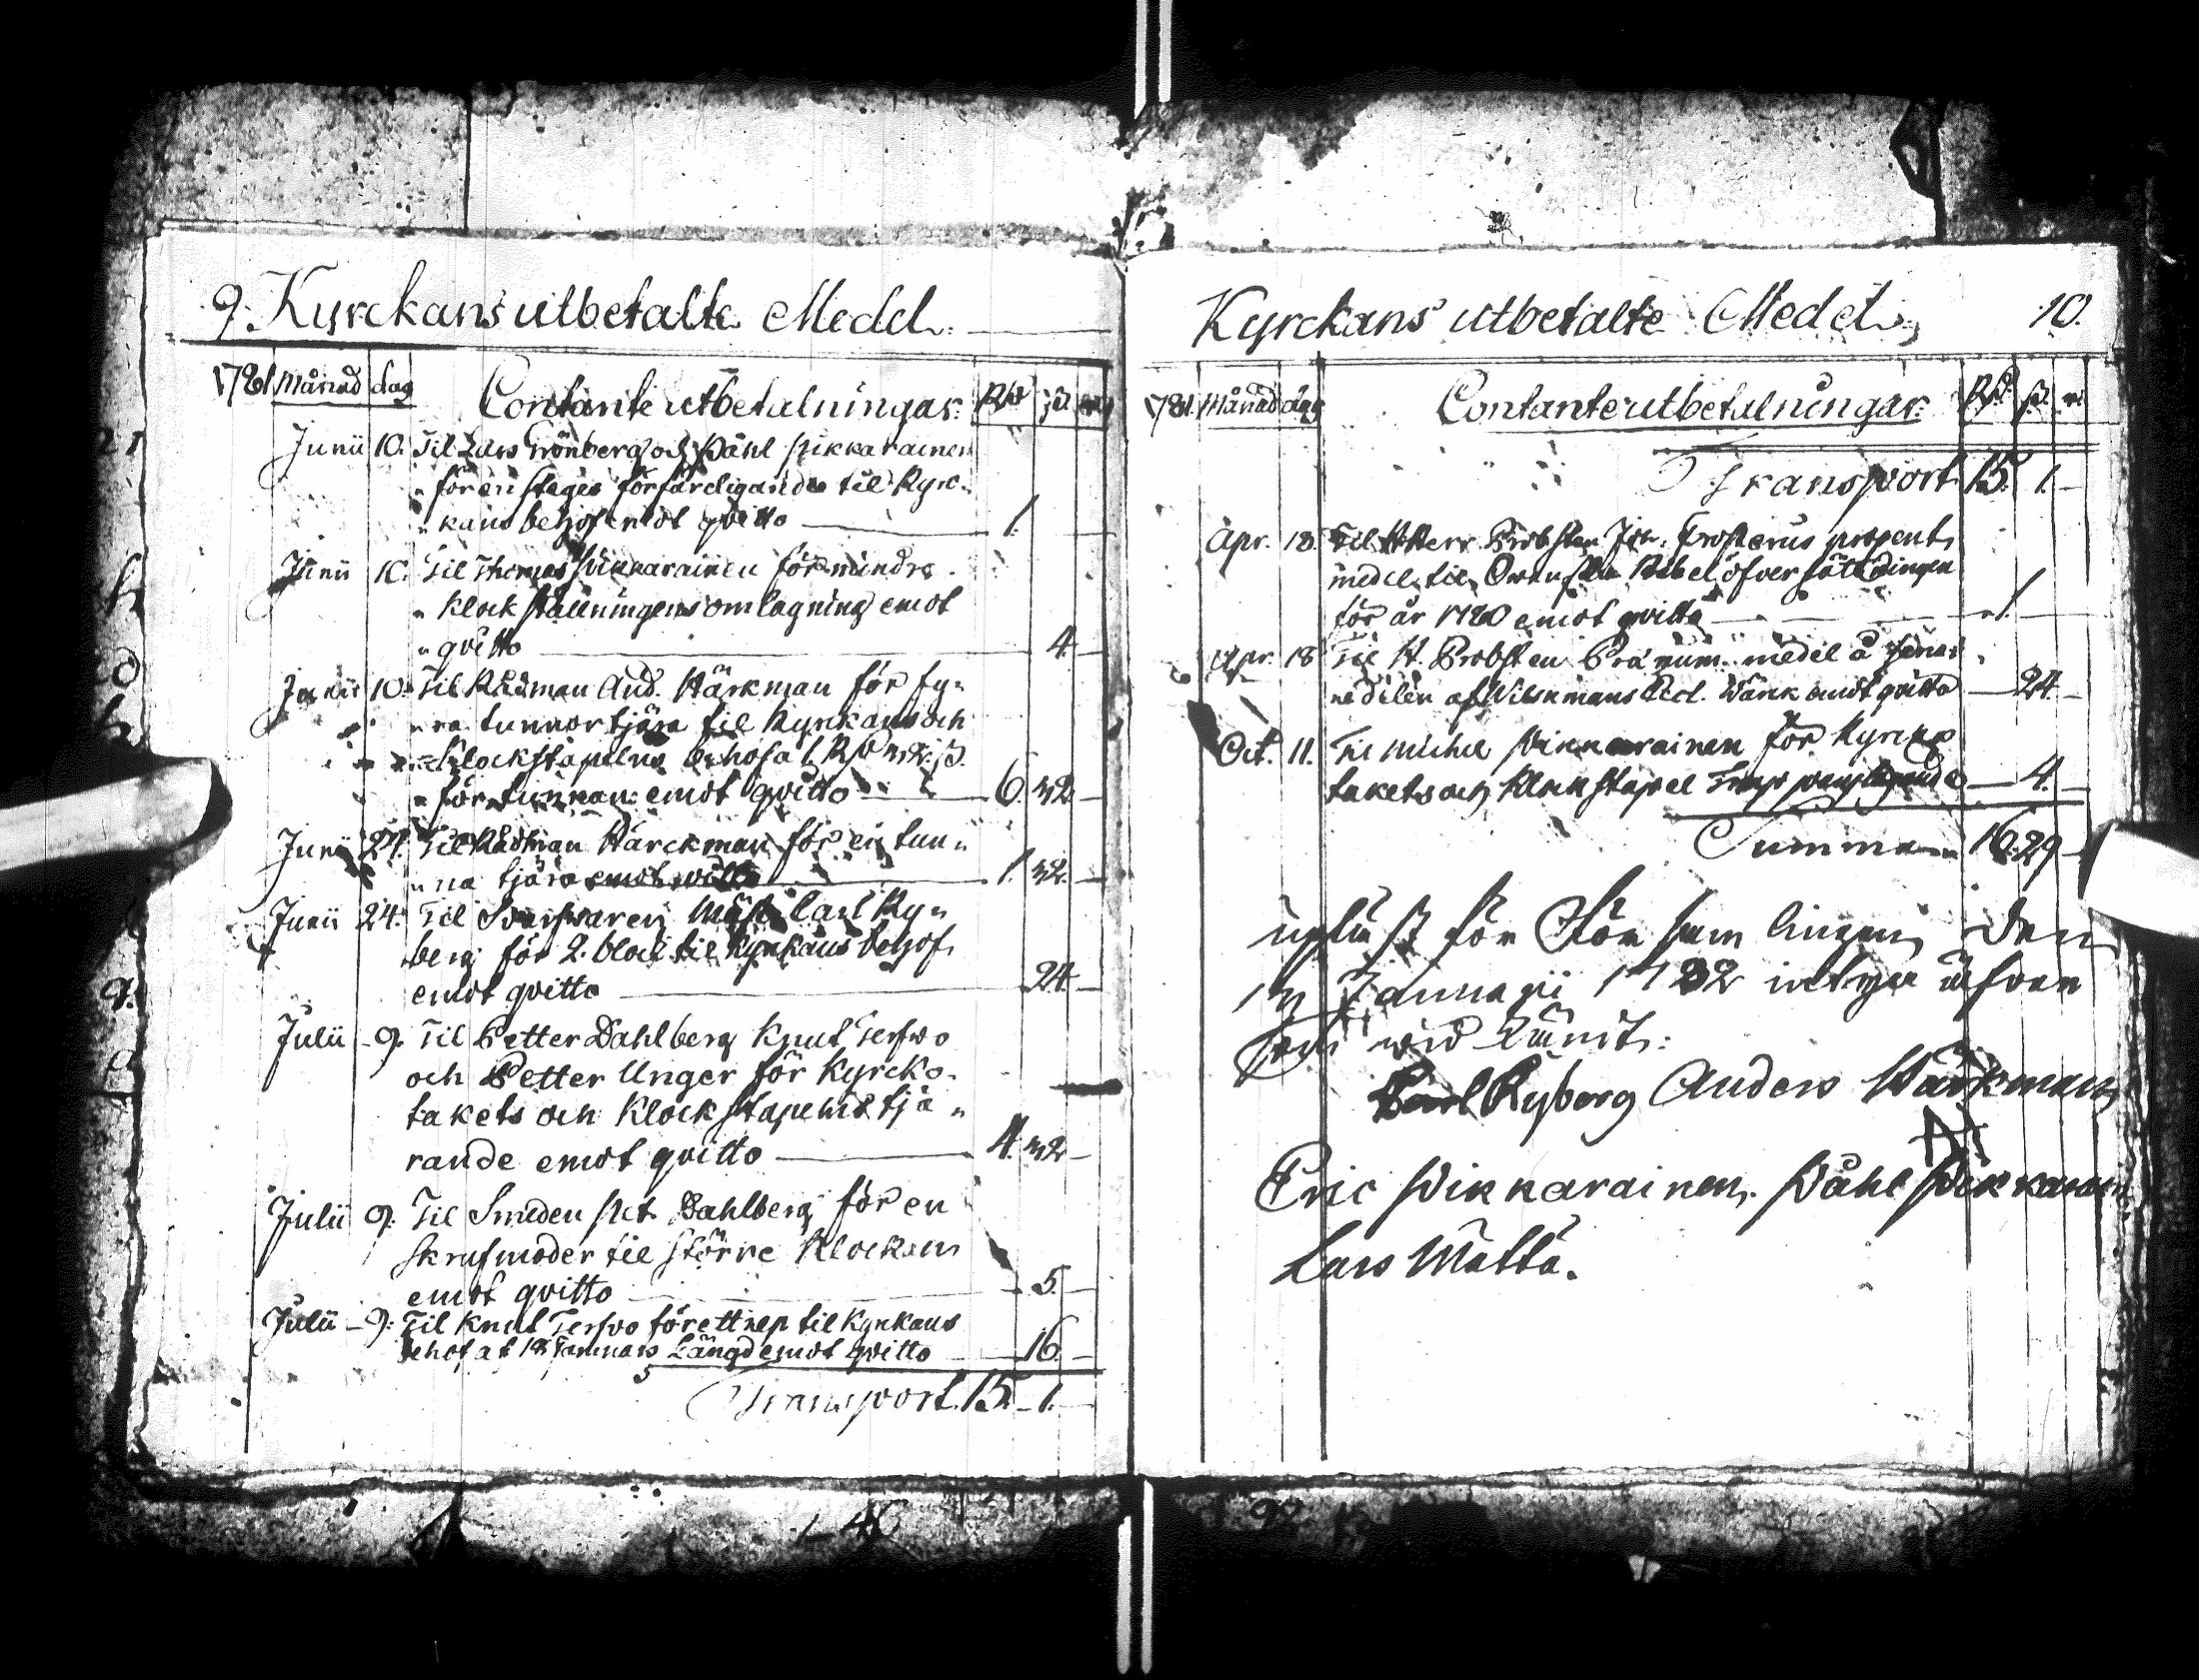 9. Kyrckans utbetalte Medel.
1781 Månad dag Contante utbetalningar. Rd ß
Junii 10. Til Lars Grönberg och Påhl Pikkarainen
för en steges förfärdigande til Kyrc-
kans behof emot qvitto 1.
Junii 10. Til Thomas Pikkarainen för mindre
klockställningens omlagning emot
qvitto 4.
Junii 10. Til Rådman And. Härkman för fy-
ra tunnor tjära til Kyrkans och
Klockstapelns behof a 1 Rd 32 ß.
för tunnan emot qvitto 6. 32
Junii 24. Til Rådman Härckman för en tun-
na tjära emot qvitto 1. 32.
Junii 24. Til Svarfwaren Mäst. Carl Ry-
berg för 2. block til Kyrkans behof
emot qvitto 24
Julii 9. Til Petter Dahlberg Knut Terfwo
och Petter Unger för Kyrcko-
takets och Klockstapelns tjä-
rande emot qvitto 4. 32
Julii 9. Til Smeden Pet. Dahlberg för en
skrufmoder til större Klockan
emot qvitto 5.
Julii 9. Til Knut Terfvo för ett rep til Kyrkans
behof at 18 Famnars Längd emot qvitto 16.
Transport. 15. 1.
Kyrckans utbetalte Medel 10.
1781. Månad dag Contante utbetalningar. Rd. ß.
Transport 15. 1.
Apr. 18. Til H Herr Probsten Joh. Frosterus procent
medel til Swenska Bibel öfversättningen
för år 1780 emot qvitto 1
Apr. 18 Til H. Probsten Prænum. medel å
delen af Wilskmans Eccl. Wärck emot qvitto 24
Oct. 11. Til Michel Pikkarainen för Kyrcko
takets och Klockstapel 4.
Summa 16. 29
upläst för Församlingen den
Januarii 1782 intyga
wid Tünit:
Carl Ryberg Anders Härkman
Eric Pikkarainen. Påhl Pikkarainen
Lars Mättä.